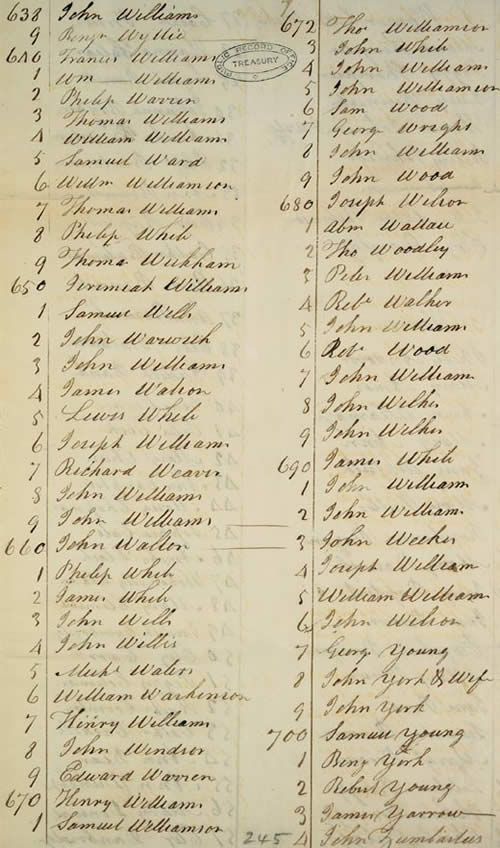 638 John Williams
9 Benjn Wyllie
640 Francis Williams
1 Wm Williams
2 Philip Warren
3 Thomas Williams
4 William Williams
5 Samuel Ward
6 Willm Williamson
7 Thomas Williams
8 Philip White
9 Thomas Wickham
650 Jeremiah Williams
1 Samuel Wells
2 John Warwick
3 John Williams
4 James Watson
5 Lewis White
6 Joseph Williams
7 Richard Weaver
8 John Williams
9 John Williams
660 John Walton
1 Philip White
2 James White
3 John Wells
4 John Willis
5 Michl Waters
6 William Warkinson
7 Henry Williams
8 John Windsor
9 Edward Warren
670 Henry Williams
1 Samuel Williamson
PUBLIC RECORD OFFICE
TREASURY
672 Thos Williamson
3 John White
4 John Williams
5 John Williamson
6 Sam Wood
7 George Wright
8 John Williams
9 John Wood
680 Joseph Wilson
1 Abm Wallace
2 Tho Woodley
3 Peter Williams
4 Robt Walker
5 John Williams
6 Robt Wood
7 John Williams
8 John Wilkes
9 John Wilkes
690 James White
1 John Williams
2 John Williams
3 John Weekes
4 Joseph William
5 William Williams
6 John Wilson
7 George Young
8 John York & Wife
9 John York
700 Samuel Young
1 Benj York
2 Young
3 James Yarrow
4 John
245